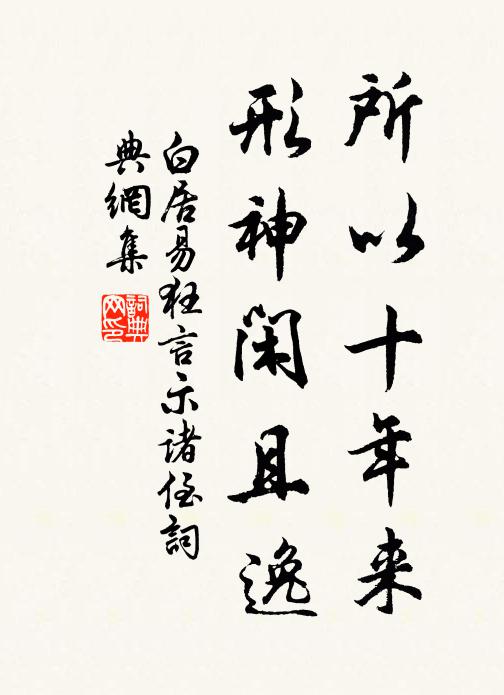 所以十年来
形神闲且逸
白居易狂言示诸侄詞
典網集
詞典
网印